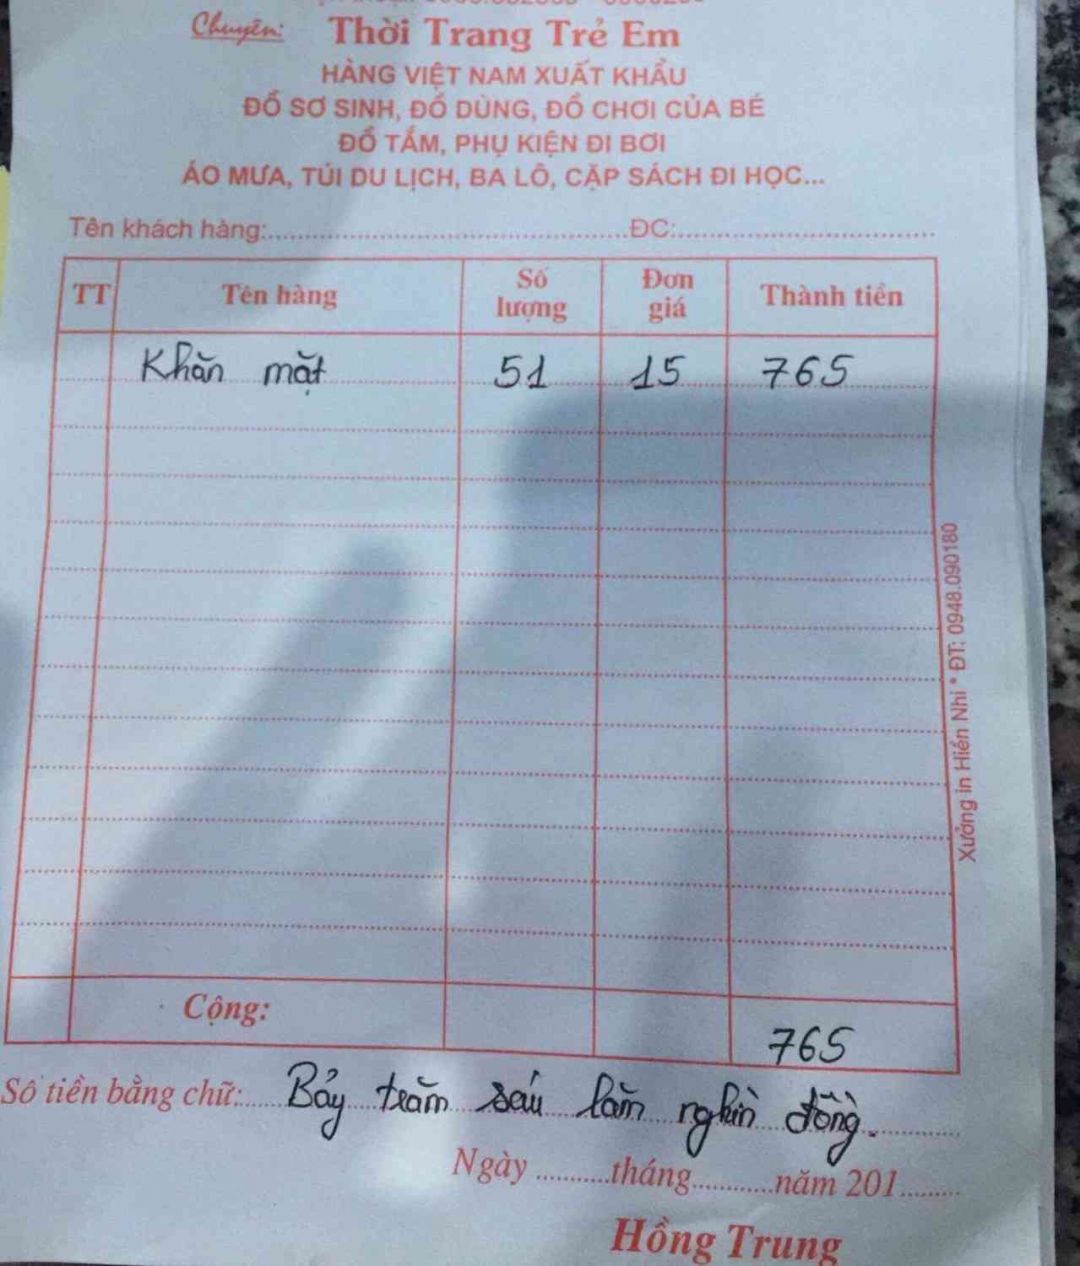 Chuyên: Thời Trang Trẻ Em
HÀNG VIỆT NAM XUẤT KHẨU
ĐỒ SƠ SINH, ĐỒ DÙNG, ĐỒ CHƠI CỦA BÉ
ĐỒ TẮM, PHỤ KIỆN ĐI BƠI
ÁO MƯA, TÚI DU LỊCH, BA LÔ, CẶP SÁCH ĐI HỌC...
Tên khách hàng:.......... ĐC:..........
TT Tên hàng Số lượng Đơn giá Thành tiền
Khăn mặt 51 15 765
Cộng: 765
Số tiền bằng chữ: Bảy trăm sáu lăm nghìn đồng.
Ngày ..........tháng..........năm 201........
Hồng Trung
Xưởng in Hiền Nhi * ĐT: 0948.090180